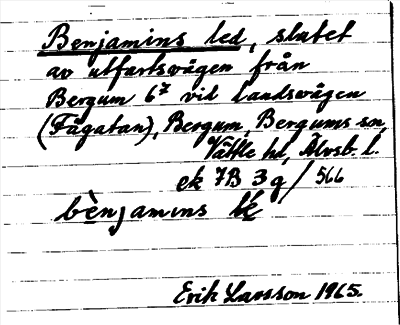 Benjamins led, slutet
av utfartsvägen från
Bergum 6² vid landsvägen
(Fågatan), Bergum, Bergums sn,
Vättle hd, Älvsb. l.
ek 7B 3g/566
bènjamins
Erik Larsson 1965.